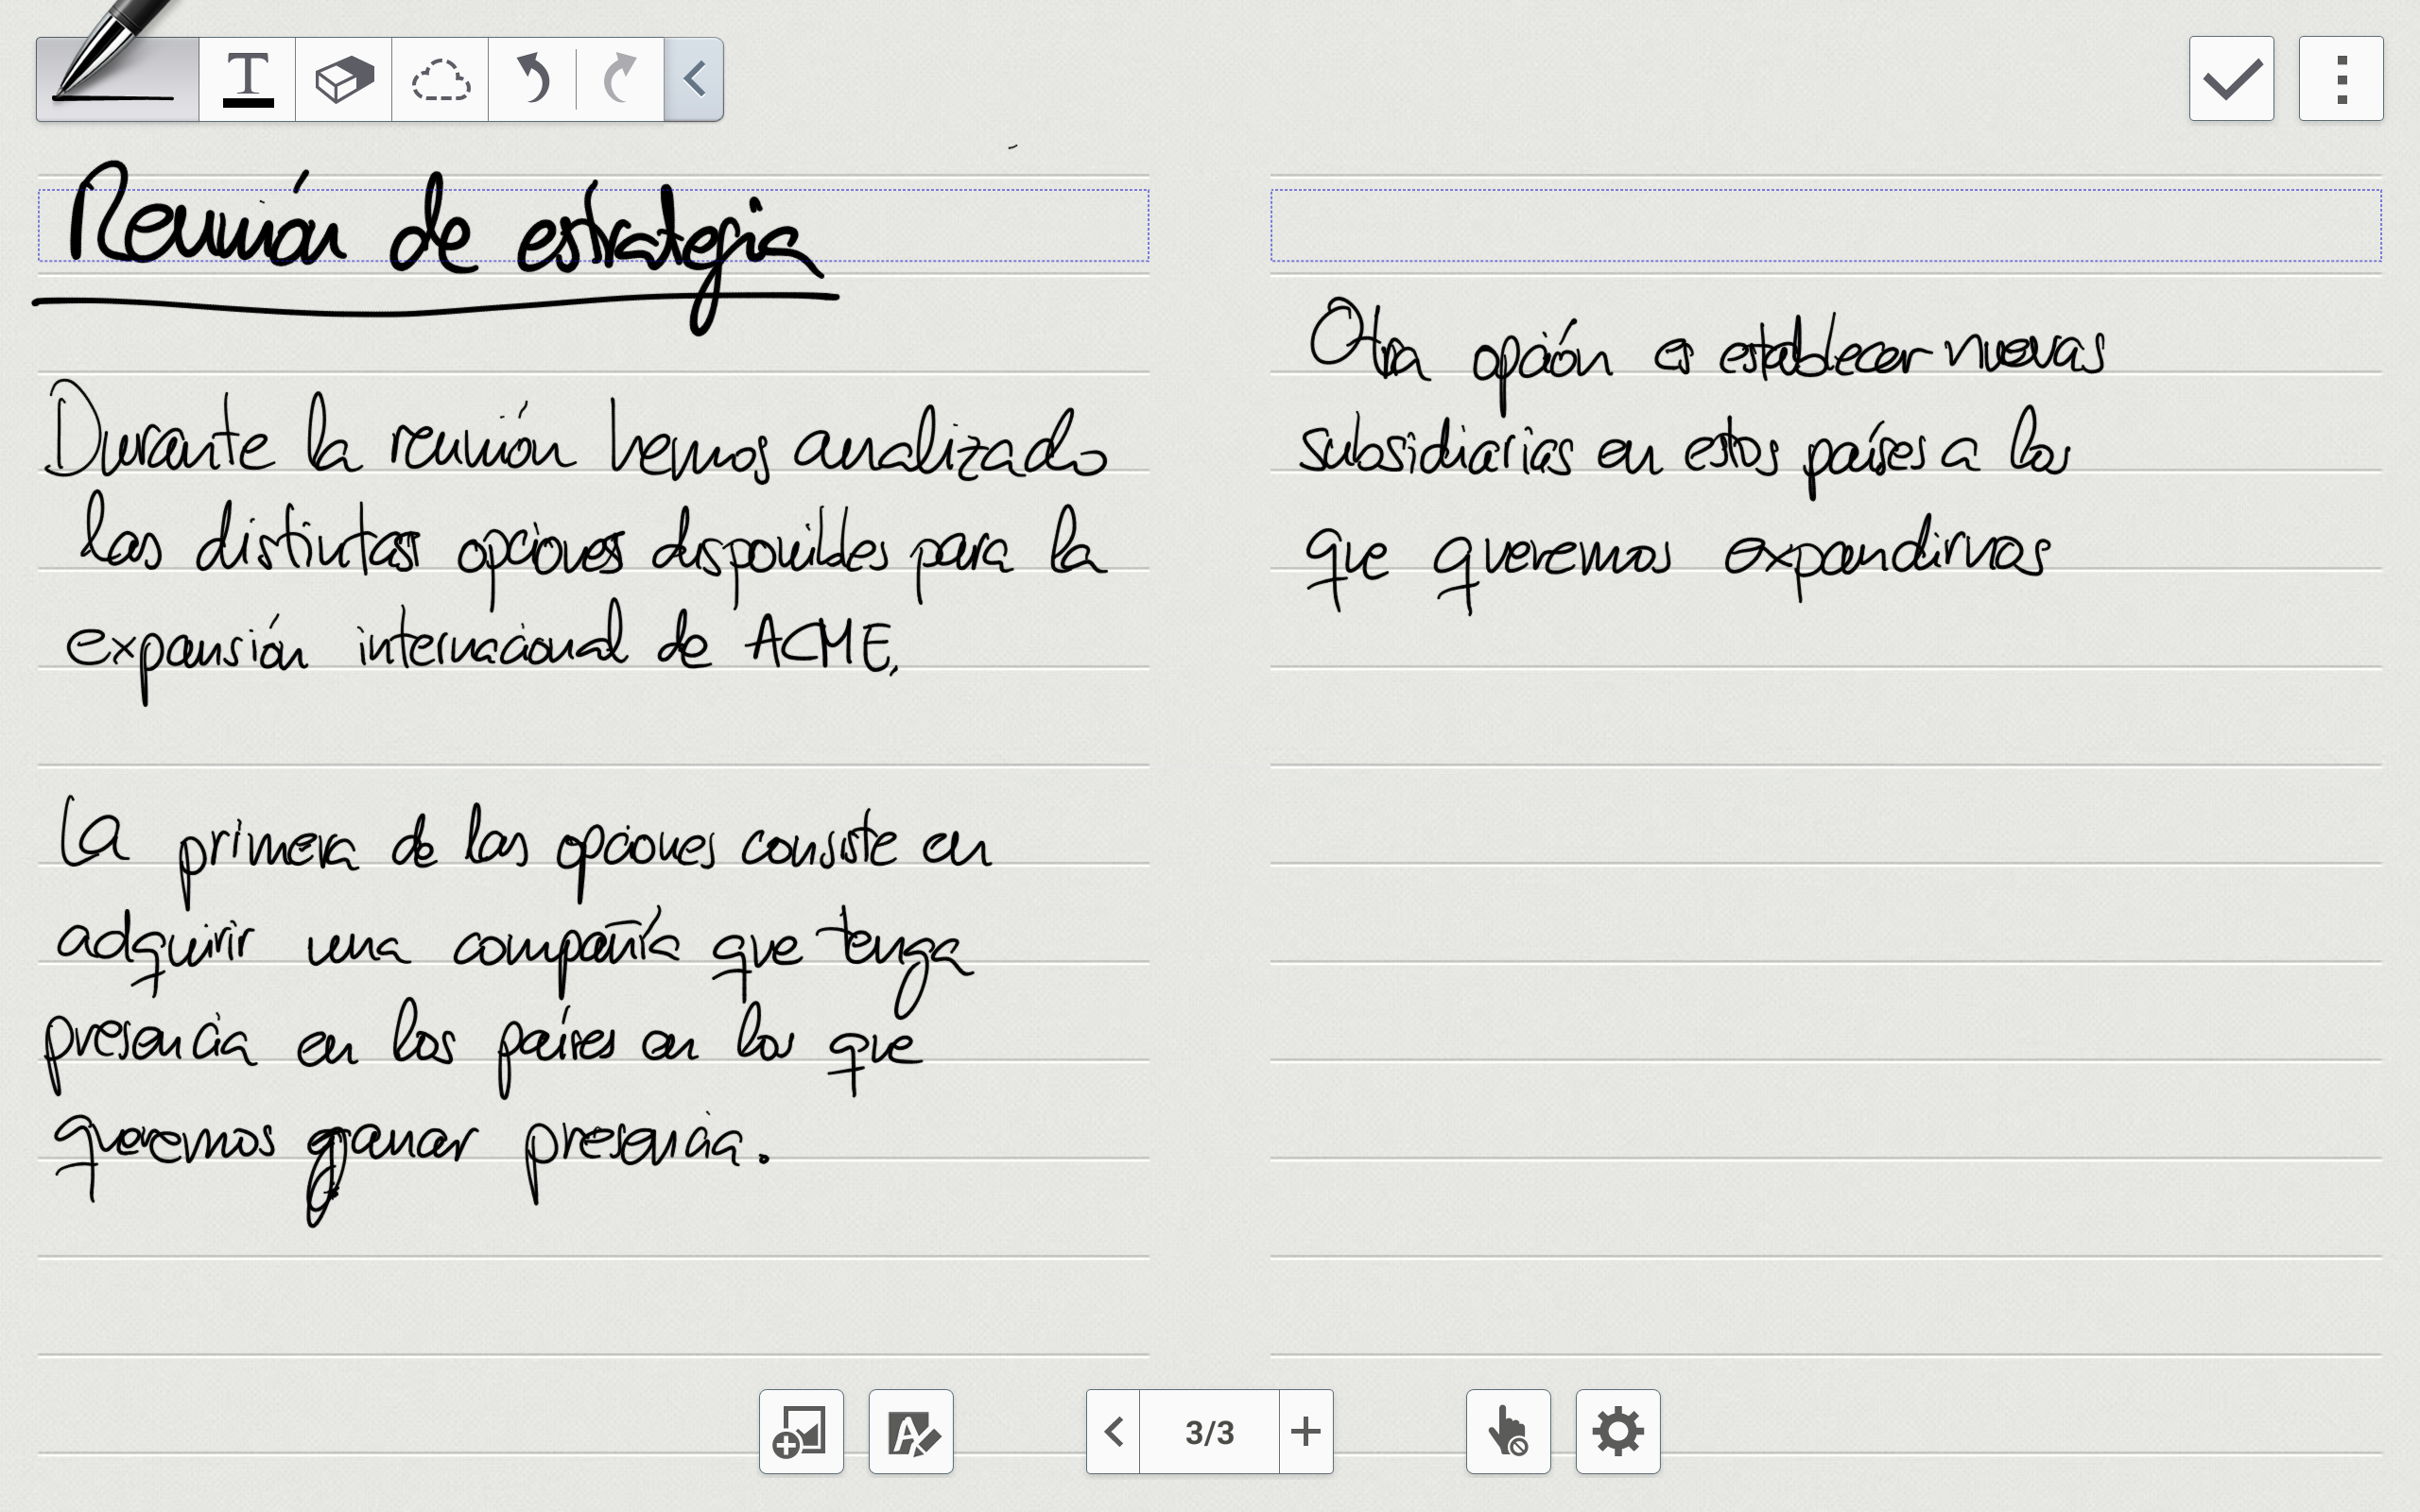 T
Reunión de estrategia
Durante la reunión hemos analizado
las distintas opciones disponibles para la
expansión internacional de ACME.
La primera de las opciones consiste en
adquirir una compañía que tenga
presencia en los países en los que
queremos ganar presencia.
Otra opción es establecer nuevas
subsidiarias en estos países a los
que queremos expandirnos
A
3/3